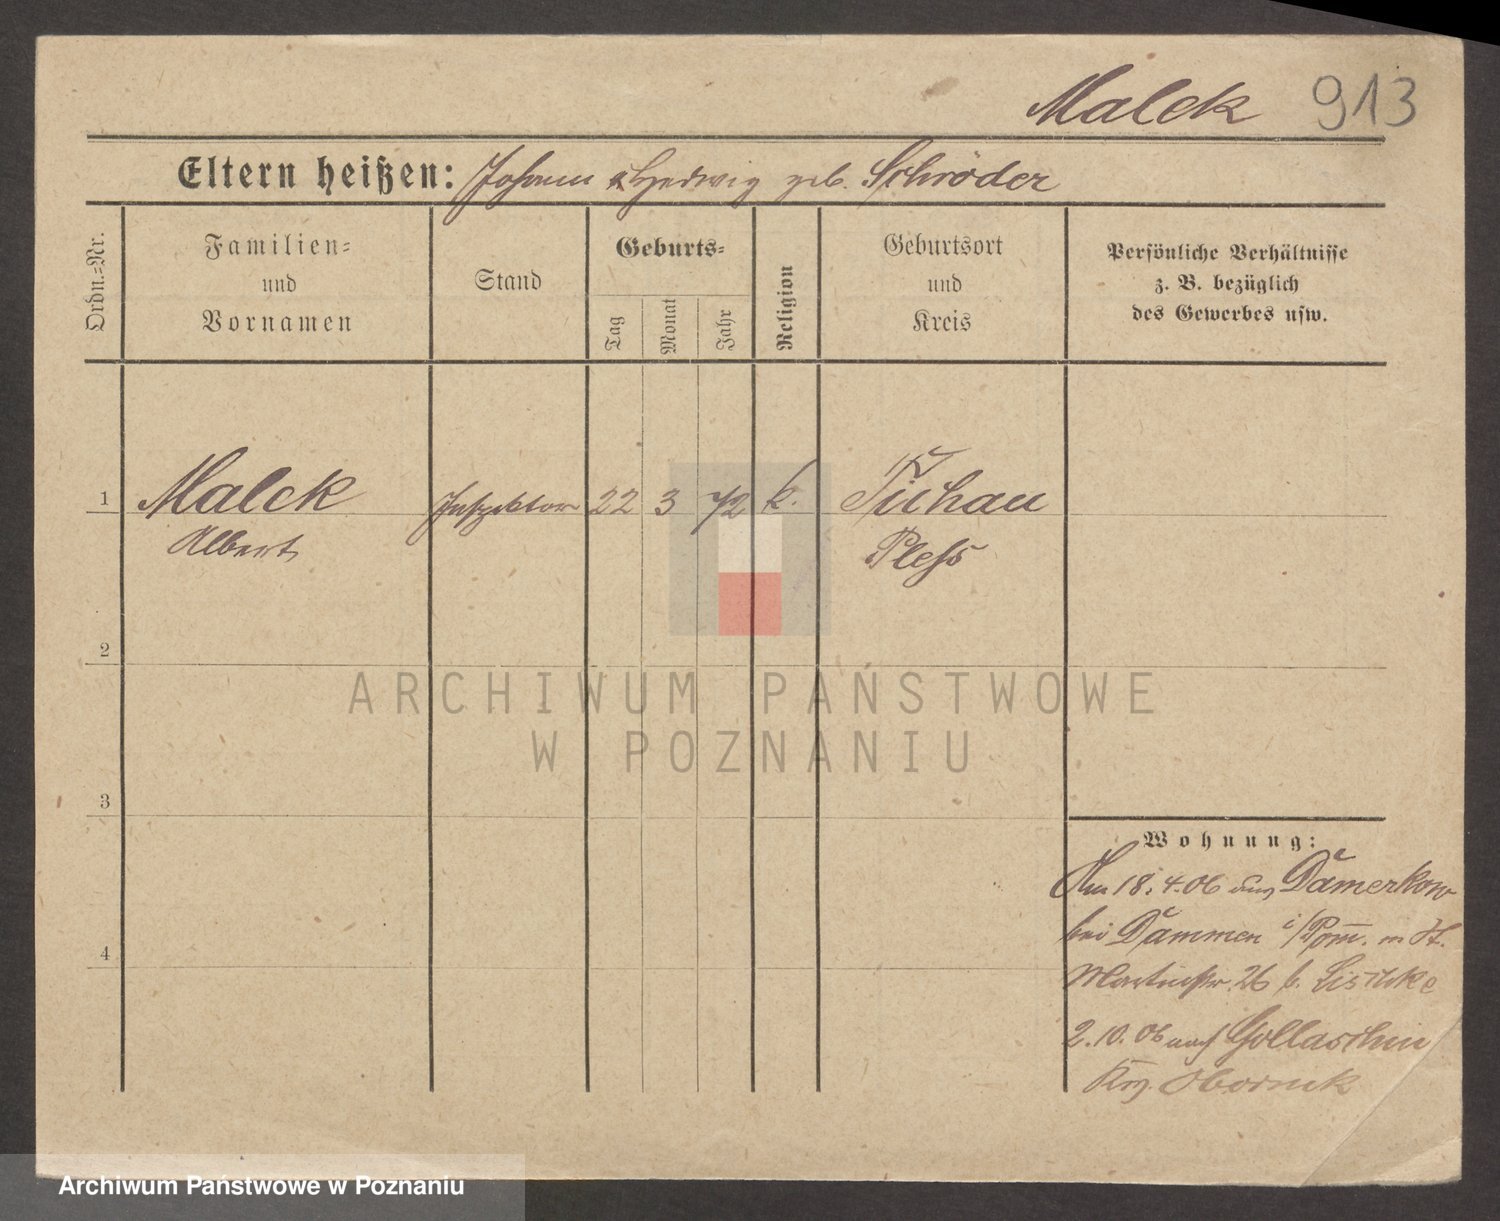 Malek 913
Eltern heißen: Johann & Hedwig geb. Schröder
Ordn.=Nr.
Familien=
und
Vornamen
Stand
Geburts=
Tag
Monat
Jahr
Religion
Geburtsort
und
Kreis
Persönliche Verhältnisse
z. B. bezüglich
des Gewerbes usw.
1 Malek Inspektor 22 3 72 k. Tichau
Albert Pleß
2
3
4
Wohnung:
Am 18.4.06 aus Damerkow
bei Dammen i/Pom. n St.
Martinstr. 26 b.
2.10.06 nach Gollaschin
Krs. Obornik
ARCHIWUM PAŃSTWOWE
W POZNANIU
Archiwum Państwowe w Poznaniu